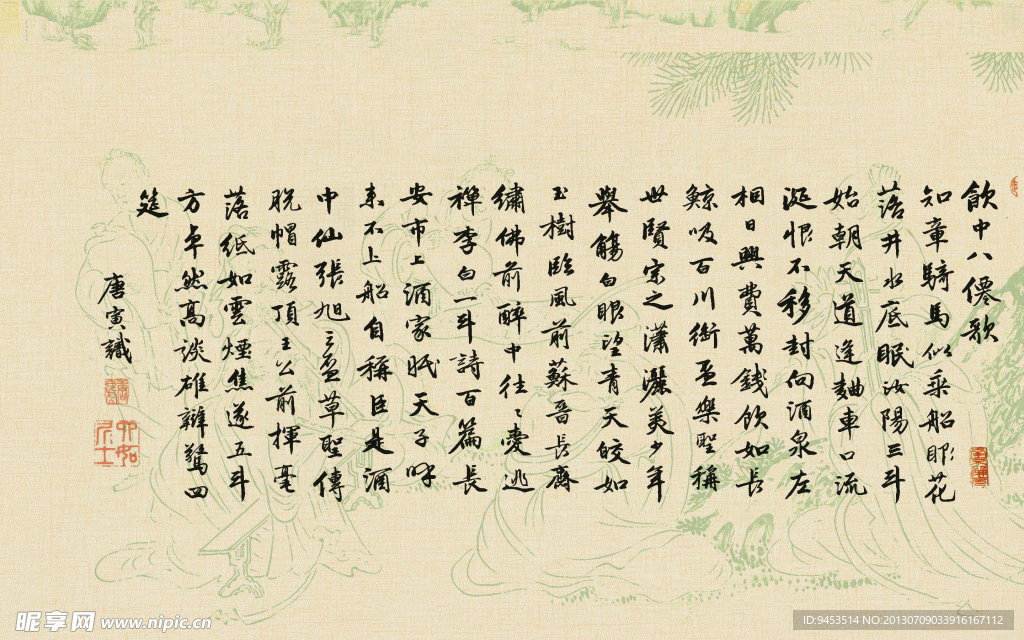 飲中八僊歌
知章騎馬似乘船眼花
落井水底眠汝陽三斗
始朝天道逢麯車口流
涎恨不移封向酒泉左
相日興費萬錢飲如長
鯨吸百川銜盃樂聖稱
世賢宗之瀟灑美少年
舉觴白眼望青天皎如
玉樹臨風前蘇晉長齋
繡佛前醉中往〻愛逃
禪李白一斗詩百篇長
安市上酒家眠天子呼
来不上船自稱臣是酒
中仙張旭三盃草聖傳
脫帽露頂王公前揮毫
落紙如雲煙焦遂五斗
方卓然高談雄辯驚四
筵
唐寅識
六如居士
昵享网 www.nipic.cn
ID:9453514 NO:20130709033916167112